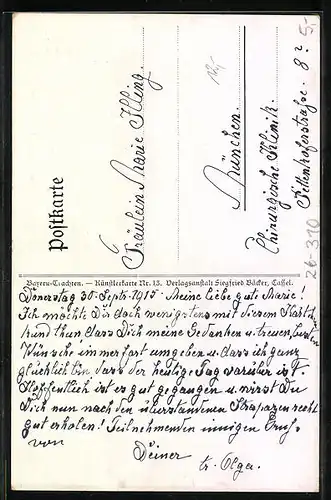 Postkarte
Fräulein Marie Illing.
München.
Chirurgische Klinik.
8?
5,-
26-310
Bayern-Trachten. — Künstlerkarte Nr. 13. Verlagsanstalt Siegfried Bäcker, Cassel.
Donerstag 30. Sept. 1915. Meine liebe gute Marie!
Ich möchte Dir doch wenigstens mit diesem Kärtch.
kund thun dass Dich meine Gedanken u. treuen,
Wünsche immerfort umgeben u. dass ich ganz
glücklich bin dass der heutige Tag vorüber ist.
Hoffentlich ist es gut gegangen u. wirst Du
Dich nun nach den überstandenen Strapazen recht
gut erholen! Teilnehmenden innigen Gruss
von
Deiner
tr. Olga.